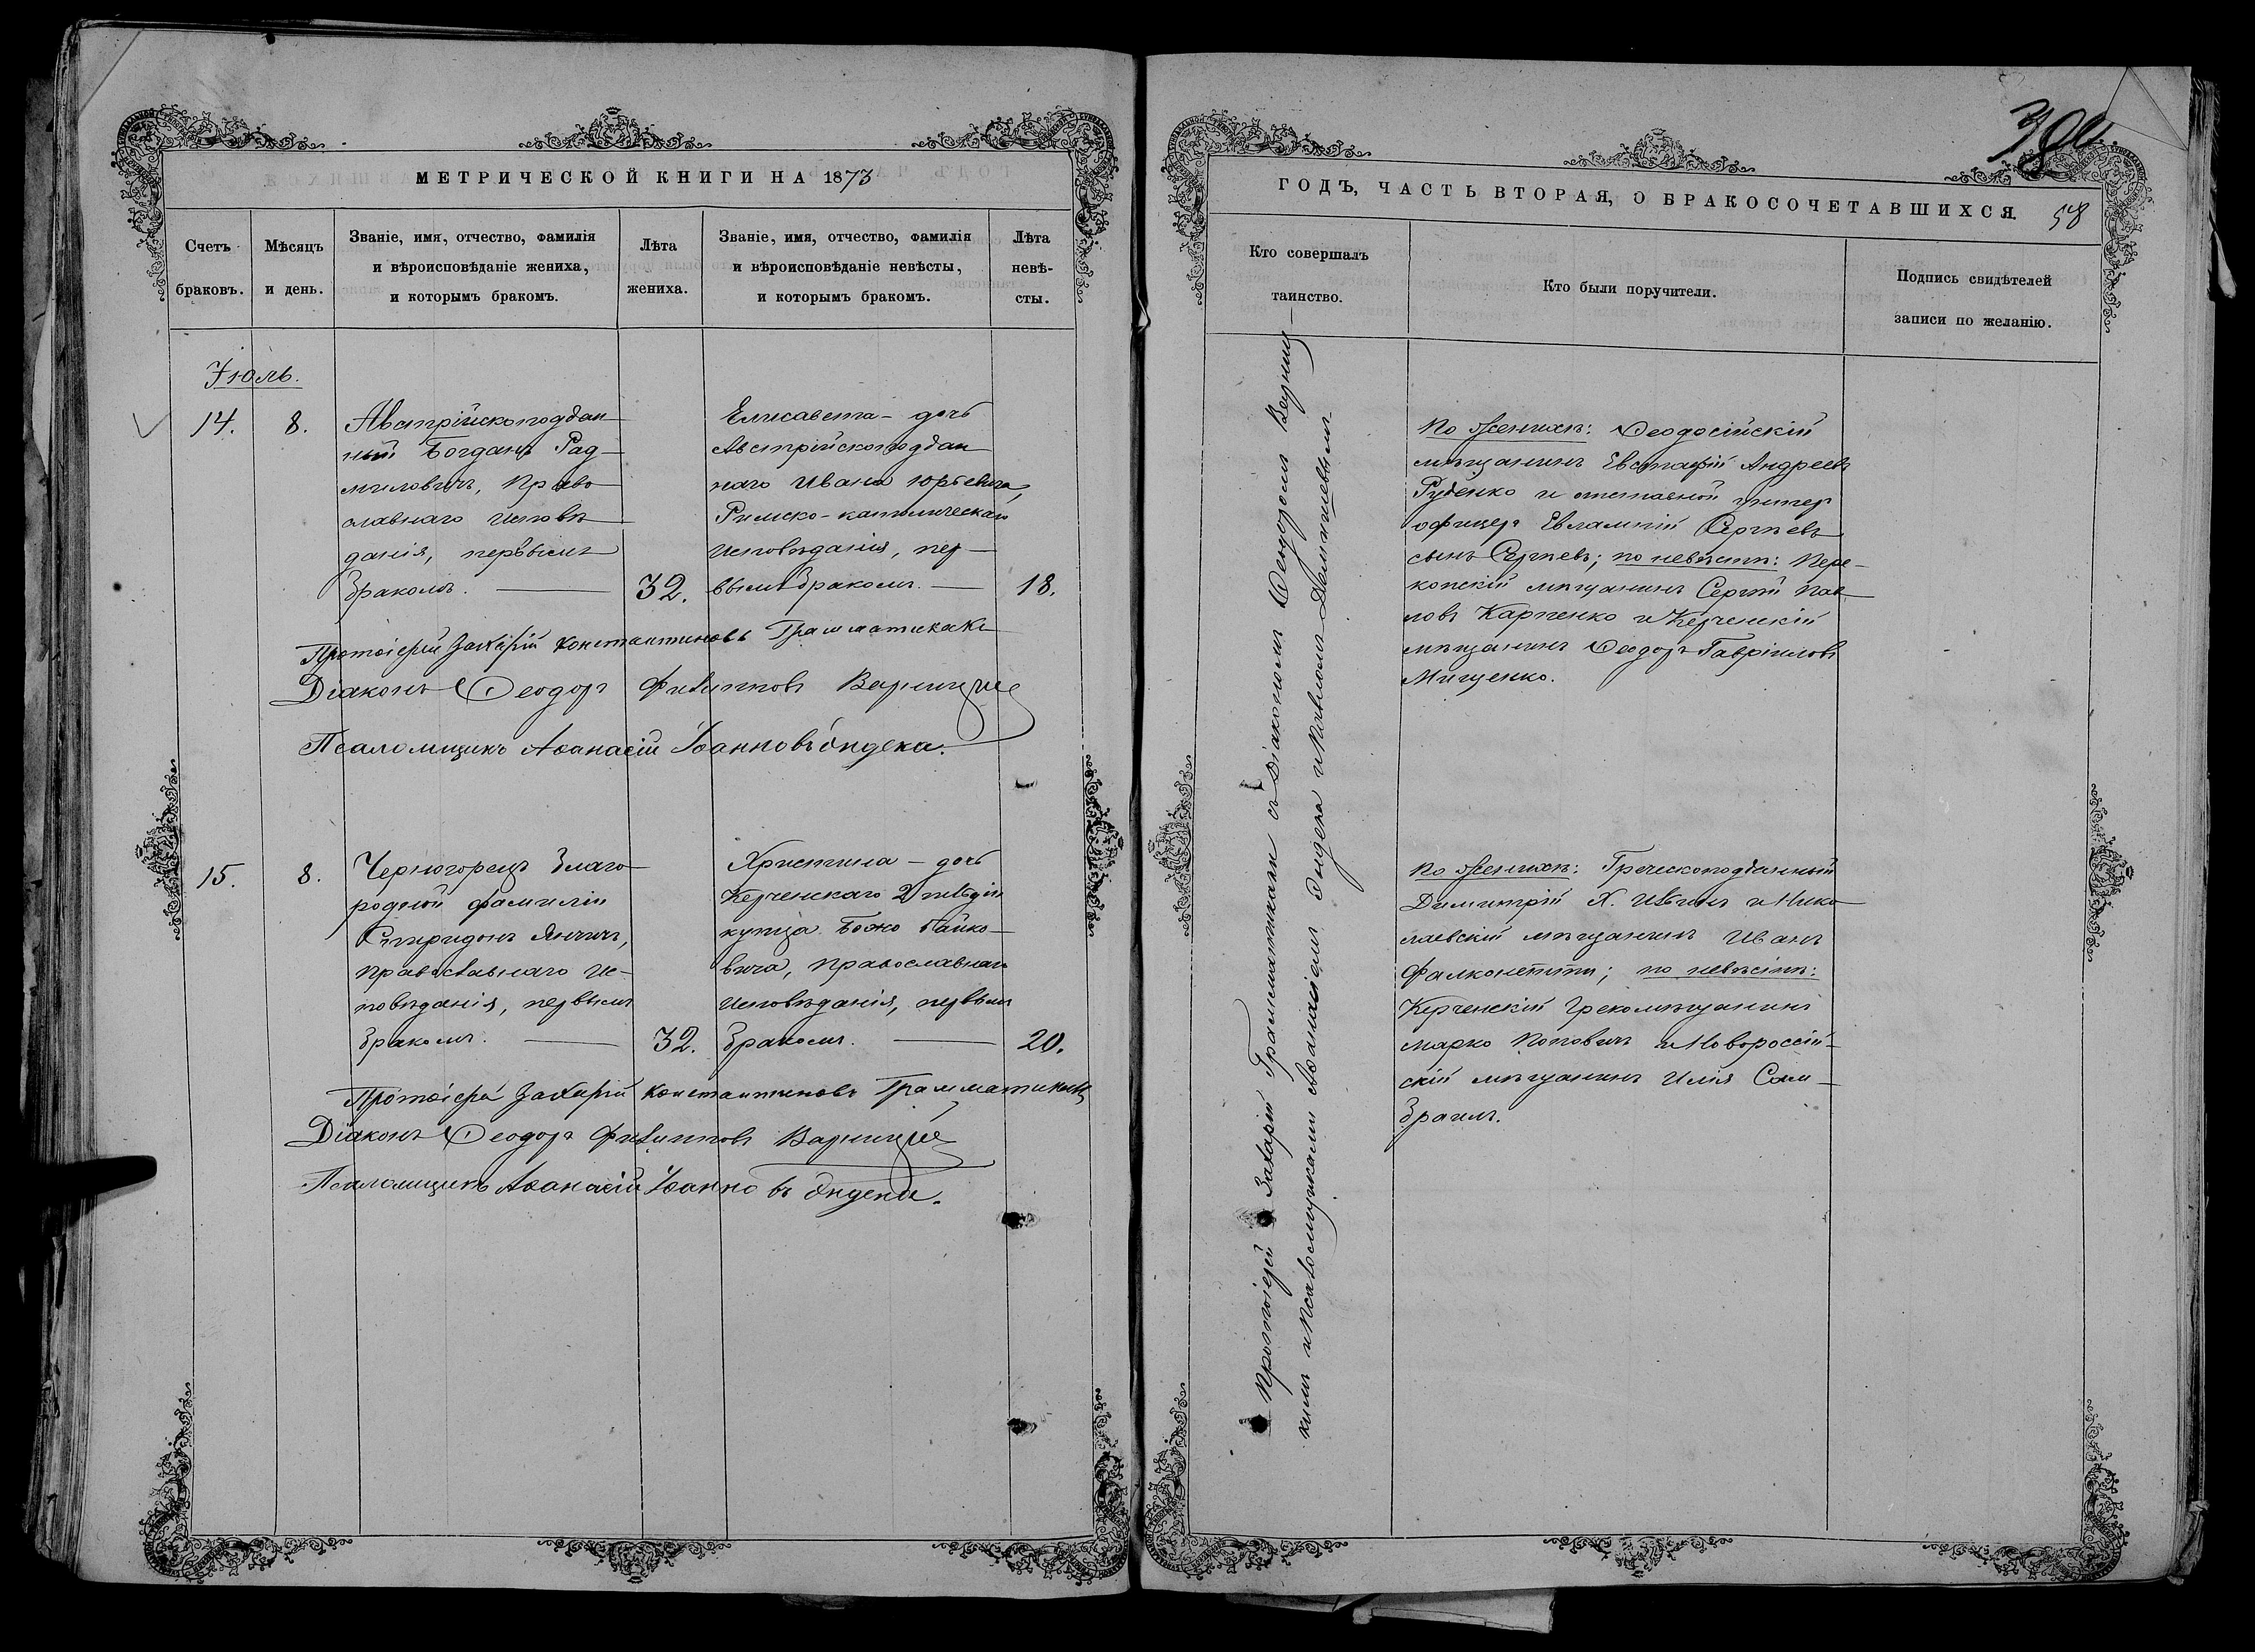 МЕТРИЧЕСКОЙ КНИГИ НА 1873
Счетъ браковъ.
Мѣсяцъ и день.
Званіе, имя, отчество, фамилія
и вѣроисповѣданіе жениха,
и которымъ бракомъ.
Лѣта жениха.
Званіе, имя, отчество, фамилія
и вѣроисповѣданіе невѣсты,
и которымъ бракомъ.
Лѣта невѣ-
сты.
Іюль.
14.
8.
Австрійскоподдан
ный Богданъ Рад-
миловичъ, Право
славнаго исповѣ
данія, первымъ
бракомъ.
32.
Елисавета - дочь
Австрійскоподдан
наго Ивана Юрьевича,
Римско-католическаго
исповѣданія, пер-
вымъ бракомъ.
18.
Протоіерей Захарій Константиновъ Грамматикаки
Діаконъ Ѳеодоръ Филипповъ Варницкій
Псаломщикъ Аѳанасій Іоанновъ Индека.
15.
8.
Черногорецъ благо
родной фамиліи
Спиридонъ Янчичъ,
православнаго ис-
повѣданія, первымъ
бракомъ.
32.
Христина - дочь
Керченскаго 2 гильдіи
купца Божо Байко-
вича, православнаго
исповѣданія, первымъ
бракомъ.
20.
Протоіерей Захарій Константиновъ Грамматикаки
Діаконъ Ѳеодоръ Филипповъ Варницкій
Псаломщикъ Аѳанасій Іоанновъ Индека.
ГОДЪ, ЧАСТЬ ВТОРАЯ, О БРАКОСОЧЕТАВШИХСЯ.
58
Кто совершалъ
таинство.
Кто были поручители.
Подпись свидѣтелей
записи по желанію.
Протоіерей Захарій Грамматикаки съ Діакономъ Ѳеодоромъ Варниц-
кимъ и Псаломщиками Аѳанасіемъ Индека и Павломъ
По женихѣ: Ѳеодосійскій
мѣщанинъ Евстафій Андреевъ
Руденко и отставной унтер
офицеръ Евлампій Сергѣевъ
сынъ Сергѣевъ; по невѣстѣ: Пере-
копскій мѣщанинъ Сергій Пав-
ловъ Карпенко и Керченскій
мѣщанинъ Ѳеодоръ Гавріиловъ
Мищенко.
По женихѣ: Греческоподданный
Димитрій Х. и Нико
лаевскій мѣщанинъ Иванъ
Фалконетти; по невѣстѣ:
Керченскій грекомѣщанинъ
Марко Поповичъ и Новороссій-
скій мѣщанинъ Илія Сам-
браилъ.